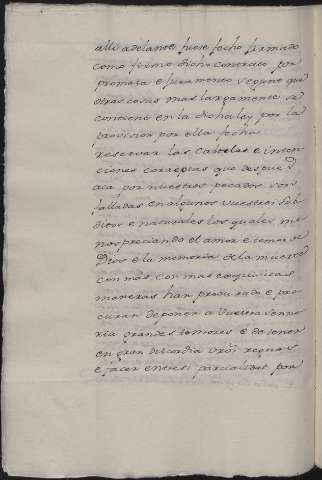 alli adelante fuese fecho firmado
como firme dicho contrato por
promesa e juramento segund que
otras cosas mas largamente se
contiene en la dicha ley por la
provision por ella fecha
reservar las cabtelas e inten
ciones corrептas que despues
aca por nuestros pecados son
falladas en algunos vuestros sub
ditos e naturales los quales me
nospreciando el amor e temor de
Dios e la memoria de la muerte
con mas con mas exquisitas
maneras han procurado e pro
curan de poner a vuestra senno
ria grandes temores e de tener
en gran discordia vros regnos
e facer entresi parcialidades por